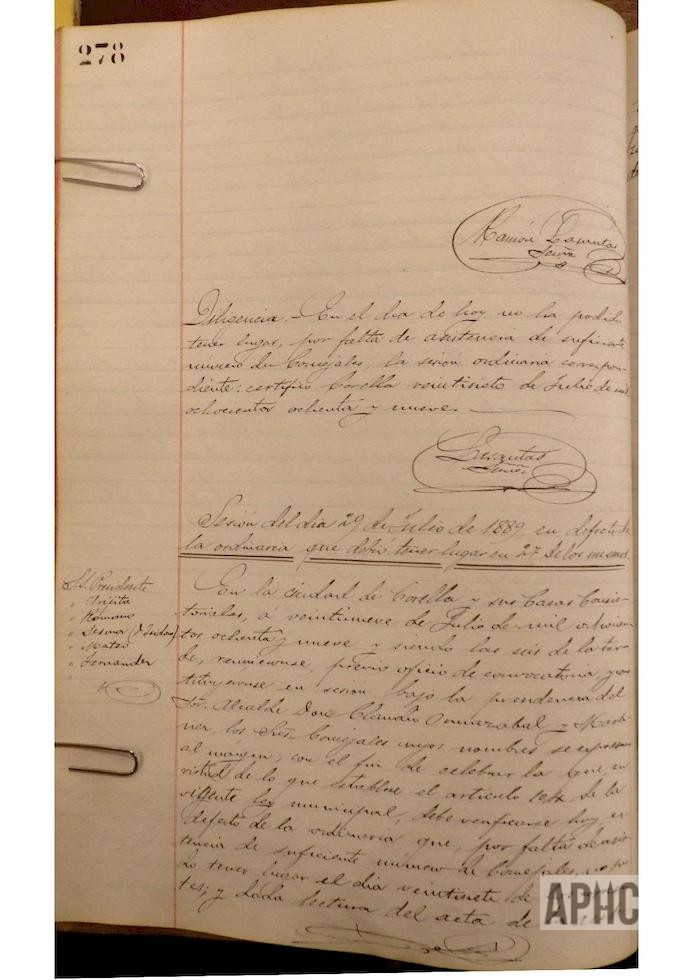 278
Ramón Lasantas
Diligencia.- En el dia de hoy no ha podido
tener lugar, por falta de asistencia de suficiente
número de Concejales, la sesión ordinaria correspon-
diente: certifico Corella veintisiete de Julio de mil
ochocientos ochenta y nueve.
Lasantas
Sesión del dia 29 de Julio de 1889 en defecto de
la ordinaria que debió tener lugar en 27 de los mismos
S.S. Presidente
" Arijita
" Romano
" Sesma (D. Isidas)
" Mateo
" Fernandez
En la ciudad de Corella y sus Casas Consis-
toriales, a veintinueve de Julio de mil ochocien-
tos ochenta y nueve y siendo las seis de la tar-
de, reunieronse, previo oficio de convocatoria, y cons-
tituyeronse en sesión, bajo la presidencia del
Sor. Alcalde Don Clancio Ormazabal y
los Sres. Concejales cuyos nombres se expresan
al margen, con el fin de celebrar la que, en
virtud de lo que establece el articulo 104 de la
vigente ley municipal, debe verificarse hoy en
defecto de la ordinaria que, por falta de asis-
tencia de suficiente número de Concejales, no pu-
do tener lugar el dia veintisiete de
tes; y dada lectura del acta de la
APHC